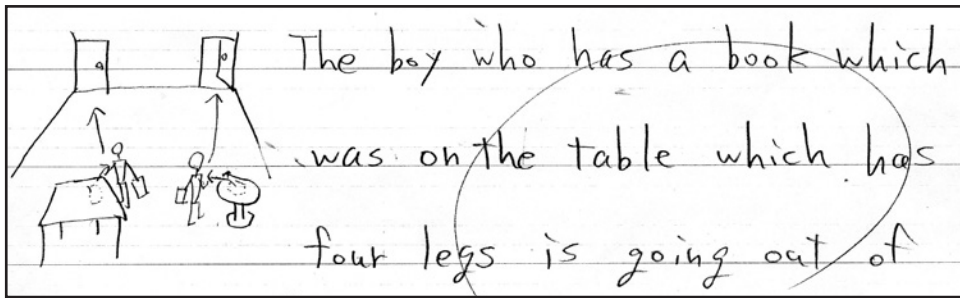 The boy who has a book which
was on the table which has
four legs is going out of